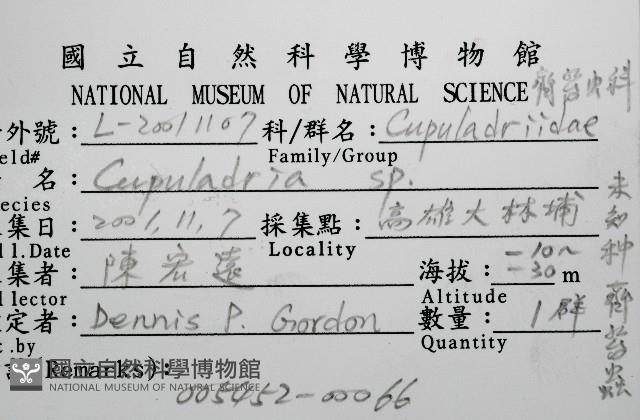 國立自然科學博物館
NATIONAL MUSEUM OF NATURAL SCIENCE 齊苔虫科
外號: L-20011107 科/群名: Cupuladriidae
eld# Family/Group
名: Cupuladria sp.
ecies
集日: 2001,11,7 採集點: 高雄大林埔
ll.Date Locality
集者: 陳宏遠 海拔: -10~-30 m
llector Altitude
定者: Dennis P. Gordon 數量: 1群
.by Quantity
Remarks):
005452-00066
未知种齊苔蟲
國立自然科學博物館
NATIONAL MUSEUM OF NATURAL SCIENCE